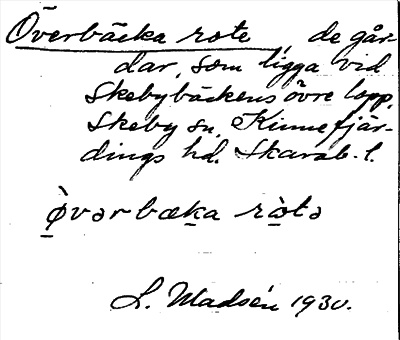 Överbäcka rote, de går-
dar, som ligga vid
Skebybäckens övre lopp,
Skeby sn, Kinnefjär-
dings hd. Skarab. l.
ø̀vərbæka ròtə
L. Madsén 1930.